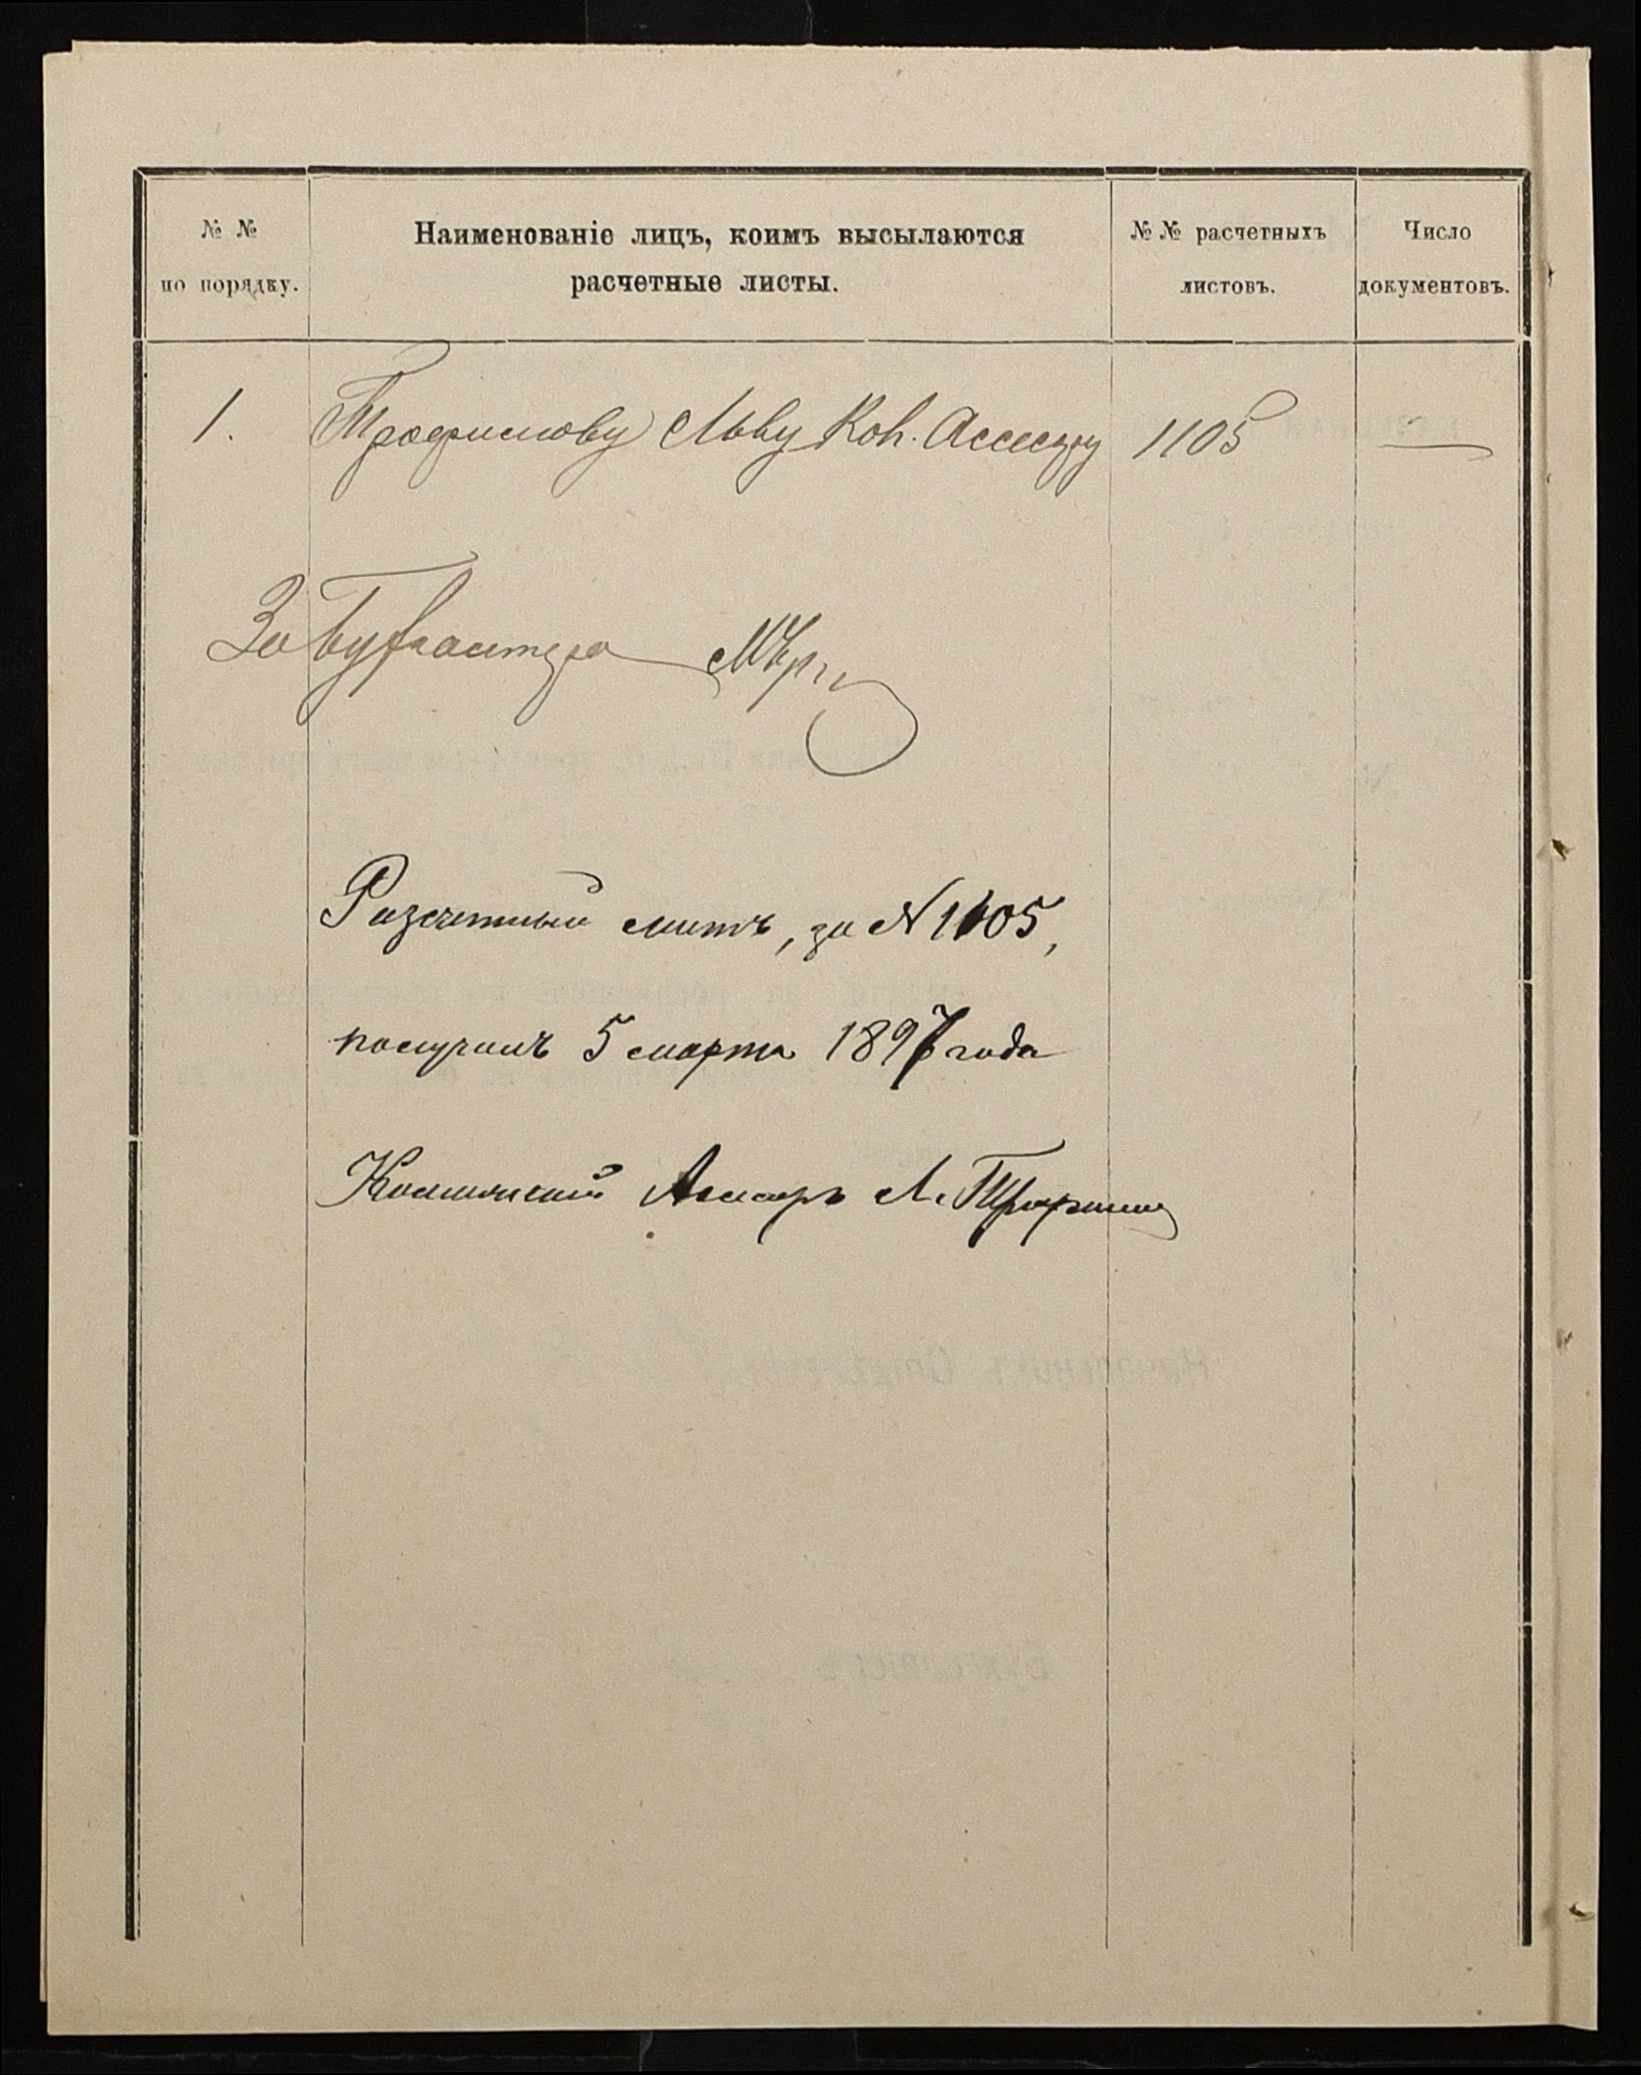 № № по порядку.
Наименованіе лицъ, коимъ высылаются
расчетные листы.
№ № расчетныхъ
листовъ.
Число
документовъ.
1. Трофимову Льву Кол. Ассесору 1105 —
За Бухгалтера
Разсчетный листъ, за № 1105,
получилъ 5 марта 1897 года
Коллежскій Ассесоръ Л. Трофимов